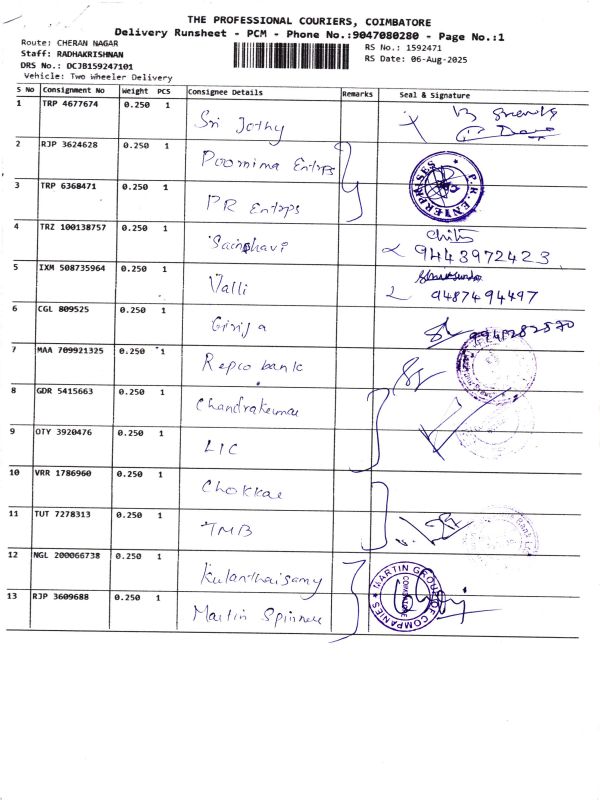 THE PROFESSIONAL COURIERS, COIMBATORE
Delivery Runsheet - PCM - Phone No.:9047080280 - Page No.:1
Route: CHERAN NAGAR
RS No.: 1592471
Staff: RADHAKRISHNAN
RS Date: 06-Aug-2025
DRS No.: DCJB159247101
Vehicle: Two Wheeler Delivery
S No Consignment No Weight PCS Consignee Details Remarks Seal & Signature
1 TRP 4677674 0.250 1 Sri Jothy
2 RJP 3624628 0.250 1 Poornima Entrps
3 TRP 6368471 0.250 1 PR Entrps
P.R. ENTERPRISES
4 TRZ 100138757 0.250 1 9443972423
5 IXM 508735964 0.250 1 Valli 9487494497
6 CGL 809525 0.250 1 Girija
7 MAA 709921325 0.250 1 Repco bank
8 GDR 5415663 0.250 1 Chandrakumar
9 OTY 3920476 0.250 1 LIC
10 VRR 1786960 0.250 1 Chokkae
11 TUT 7278313 0.250 1 TMB
12 NGL 200066738 0.250 1 Kulanthaisamy
13 RJP 3609688 0.250 1 Martin Spinners
MARTIN GROUP OF COMPANIES
COIMBATORE